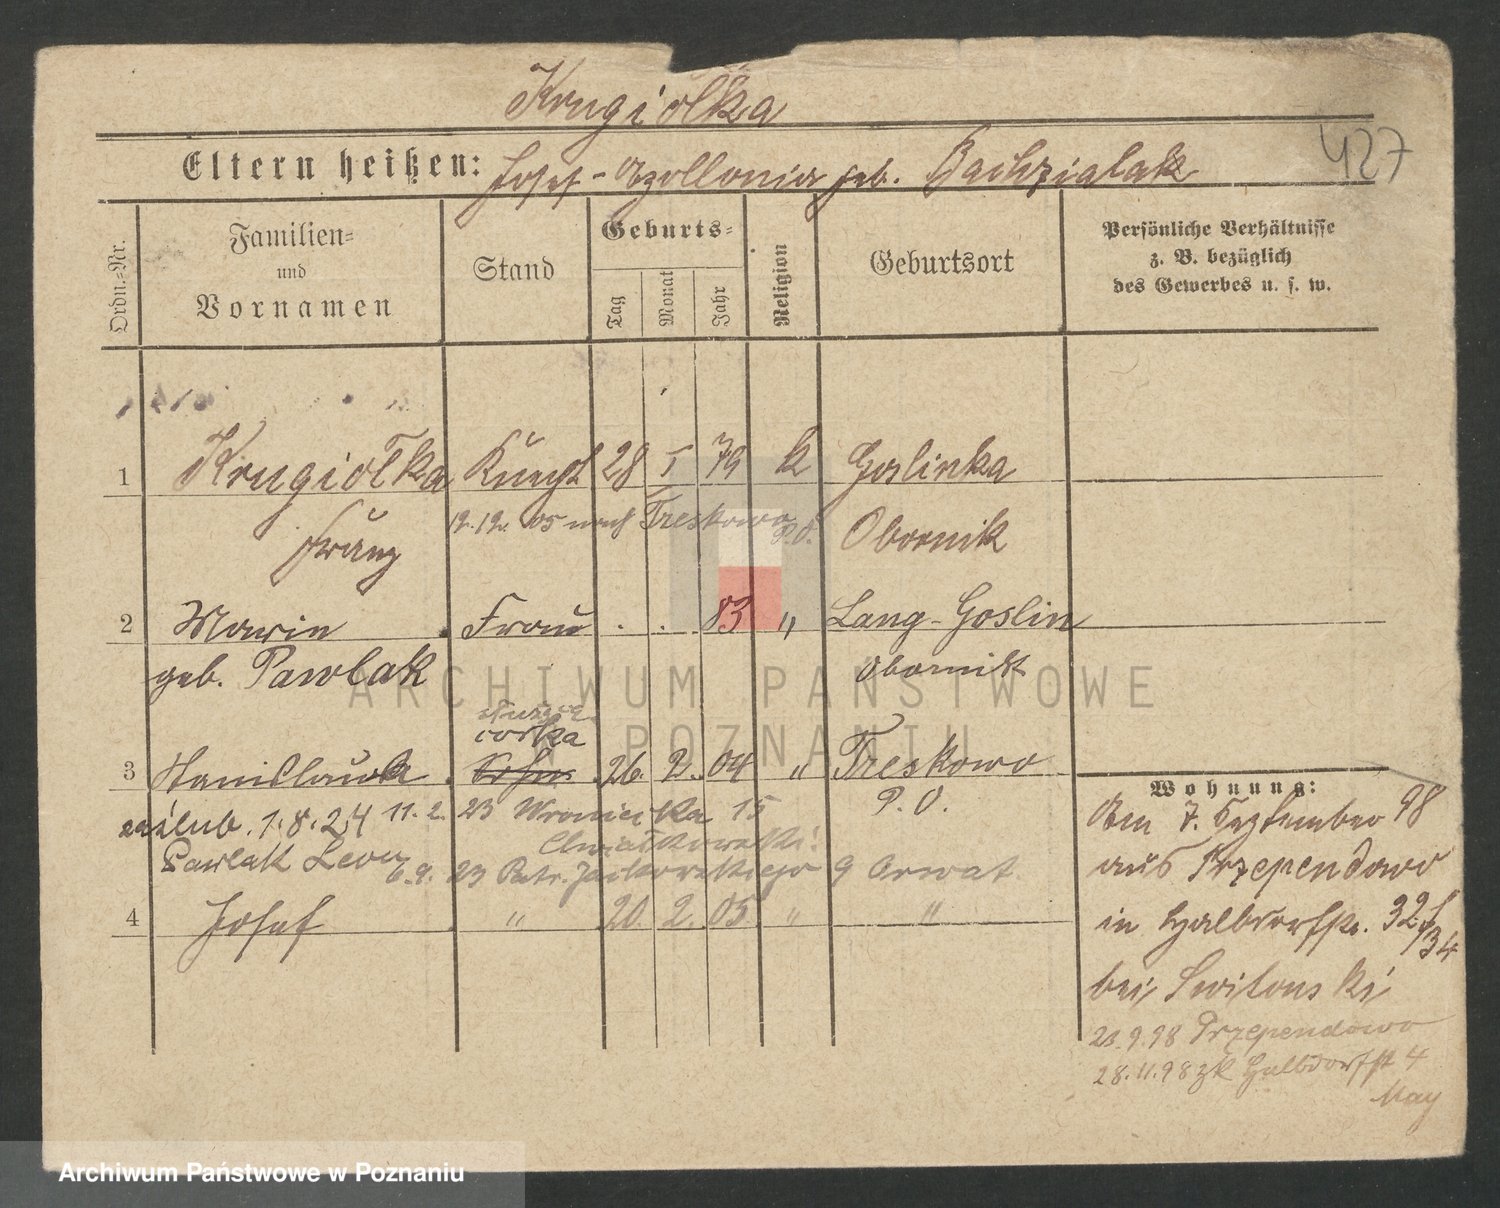 Krugiolka
427
Eltern heißen: Josef - Apollonia geb.
Ordn.=Nr.
Familien=
und
Vornamen
Stand
Geburts=
Tag
Monat
Jahr
Religion
Geburtsort
Persönliche Verhältnisse
z. B. bezüglich
des Gewerbes u. s. w.
1 Krugiolka Knecht 28 5 79 k Goslinka
12.12. 05 nach Treskowo P.O.
Franz Obornik
2 Marie Frau . . 83 " Lang-Goslin
geb. Pawlak Obornik
córka
3 Stanislawa Sohn 26. 2. 04 " Treskowo
P. O.
zaślub. 1.8.24 11. 2. 23 Wroniecka 15
Pawlak Leon
6.9. 23 Patr. Jackowskiego 9 Orwat.
4 Josef " 20. 2. 05. " "
Wohnung:
Am 7. September 98
aus Przependowo
in Halbdorfstr. 32/34
bei Switonski
23.9.98 Przependowo
28.11.98 zk Halbdorfstr 4
May
ARCHIWUM PAŃSTWOWE
W POZNANIU
Archiwum Państwowe w Poznaniu